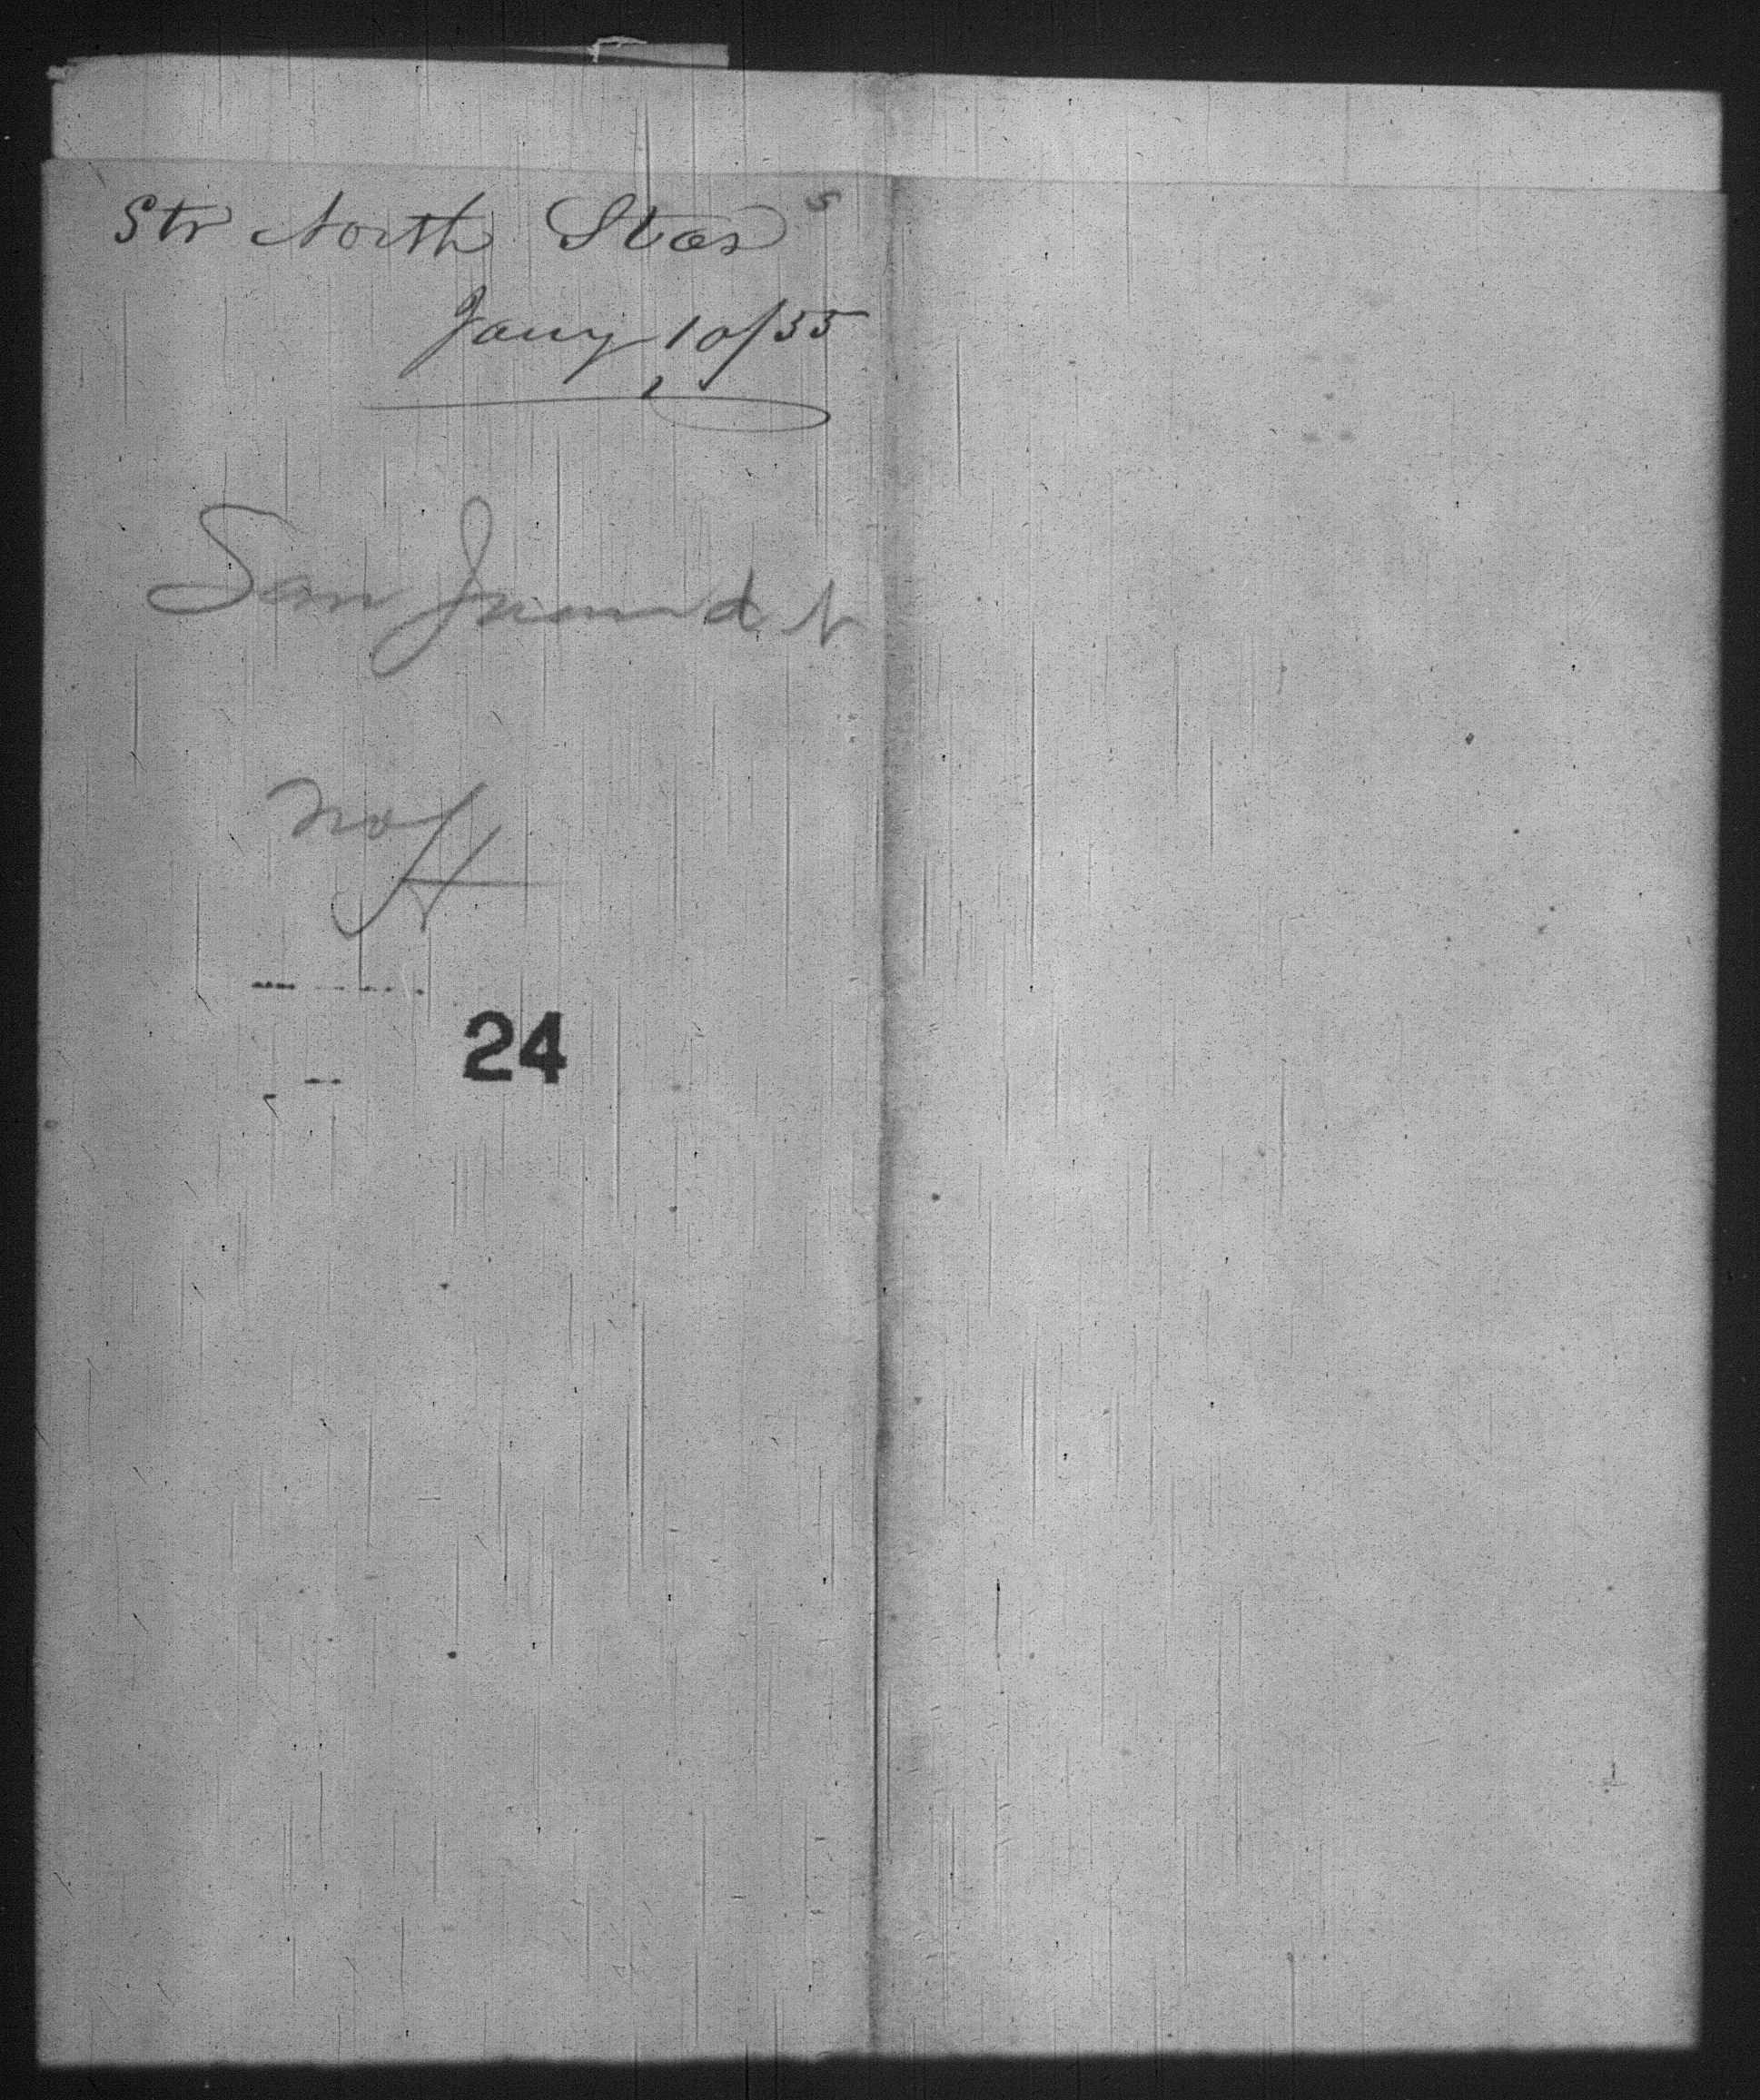 Str North Star s
Jany 10/55
San Juan d N
No
24